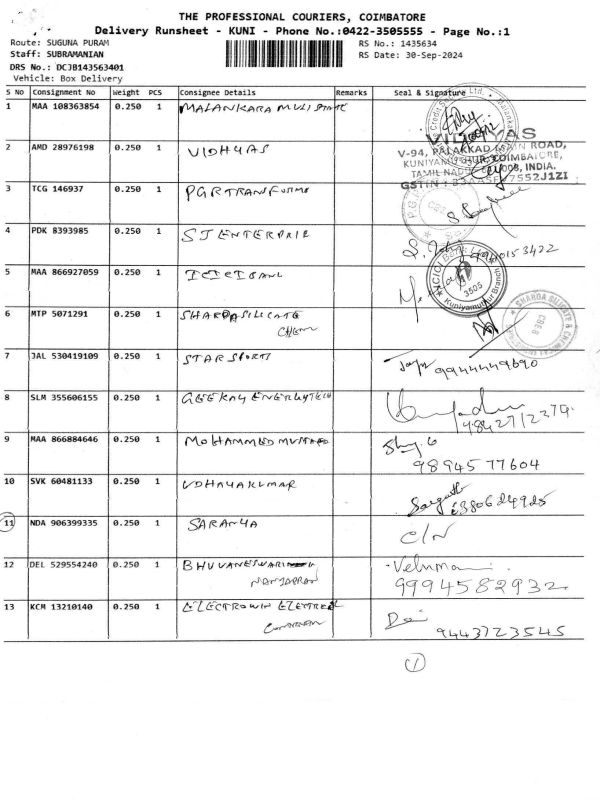 THE PROFESSIONAL COURIERS, COIMBATORE
Delivery Runsheet - KUNI - Phone No.:0422-3505555 - Page No.:1
Route: SUGUNA PURAM RS No.: 1435634
Staff: SUBRAMANIAN RS Date: 30-Sep-2024
DRS No.: DCJB143563401
Vehicle: Box Delivery
S No Consignment No Weight PCS Consignee Details Remarks Seal & Signature
1 MAA 108363854 0.250 1 MALANKARA MULISTATE
2 AMD 28976198 0.250 1 VIDHYAS
VIDHYAS
V-94, PALAKKAD MAIN ROAD,
KUNIYAMUTHUR, COIMBATORE,
TAMIL NADU 641008, INDIA.
3 TCG 146937 0.250 1 PGRTRANSFORMS
4 PDK 8393985 0.250 1 SJ ENTERPRIE
5 MAA 866927059 0.250 1 ICICIBANK
ICICI Bank
3505
Kuniyamuthur Branch
6 MTP 5071291 0.250 1 SHARDASILICATE
CHEM
SHARDA SILICATE & CHEMICAL
CBE8
7 JAL 530419109 0.250 1 STARSPORTS
9944449690
8 SLM 355606155 0.250 1 GEEKAY ENERGYTECH
9 MAA 866884646 0.250 1 MOHAMMED
9894577604
10 SVK 60481133 0.250 1 UDHAYAKUMAR
11 NDA 906399335 0.250 1 SARANYA C/N
12 DEL 529554240 0.250 1 BHUVANESWARI
NANJAPPAN
Velumani
9994582932
13 KCM 13210140 0.250 1 ELECTROWIN ELECTRICAL
9443723545
1